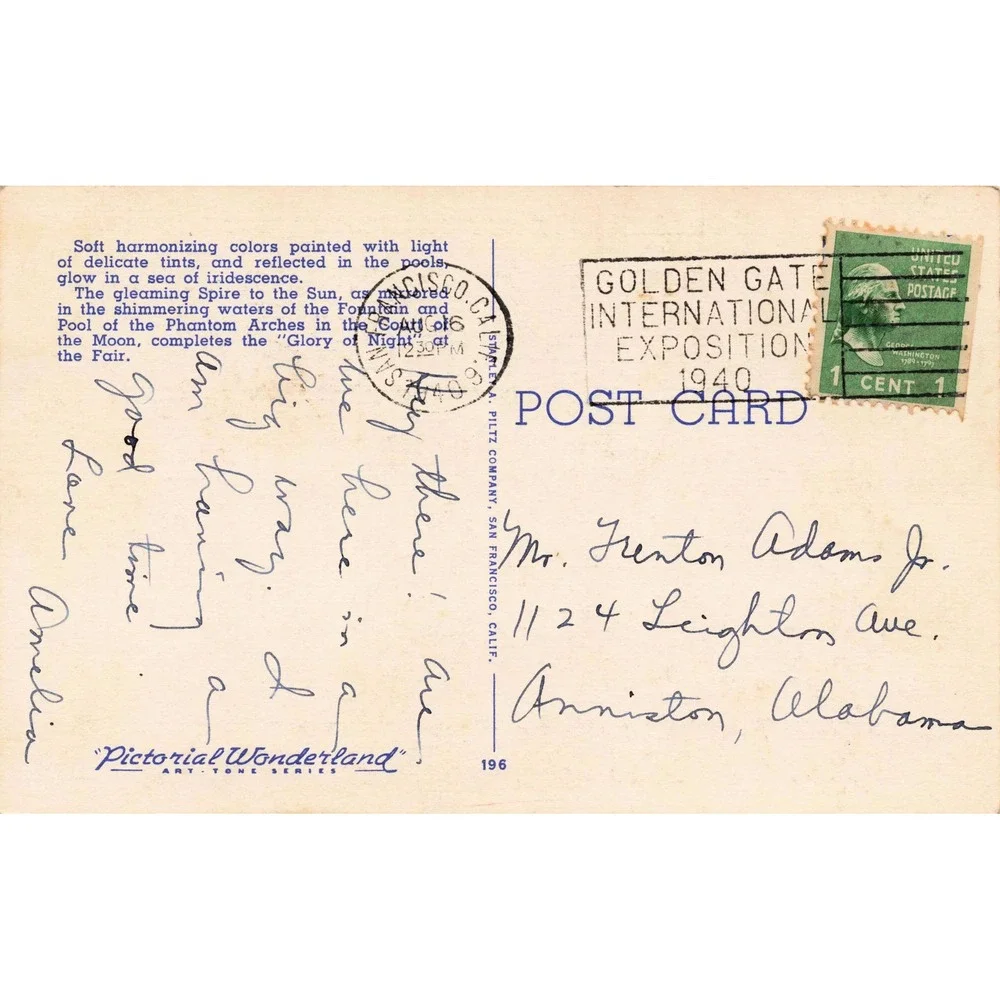 Soft harmonizing colors painted with light
of delicate tints, and reflected in the pools,
glow in a sea of iridescence.
The gleaming Spire to the Sun, as mirrored
in the shimmering waters of the Fountain and
Pool of the Phantom Arches in the Court of
the Moon, completes the "Glory of Night" at
the Fair.
Hey there! Are
we here in a
big way. I
am having a
good time
Love
Amelia
"Pictorial Wonderland"
ART-TONE SERIES
STANLEY A. PILTZ COMPANY, SAN FRANCISCO, CALIF.
196
SAN FRANCISCO, CALIF. 9
AUG 6
12 30 PM
1940
GOLDEN GATE
INTERNATIONAL
EXPOSITION
1940
UNITED
STATES
POSTAGE
GEORGE
WASHINGTON
1789-1797
1 CENT 1
POST CARD
Mr. Trenton Adams Jr.
1124 Leighton Ave.
Anniston, Alabama